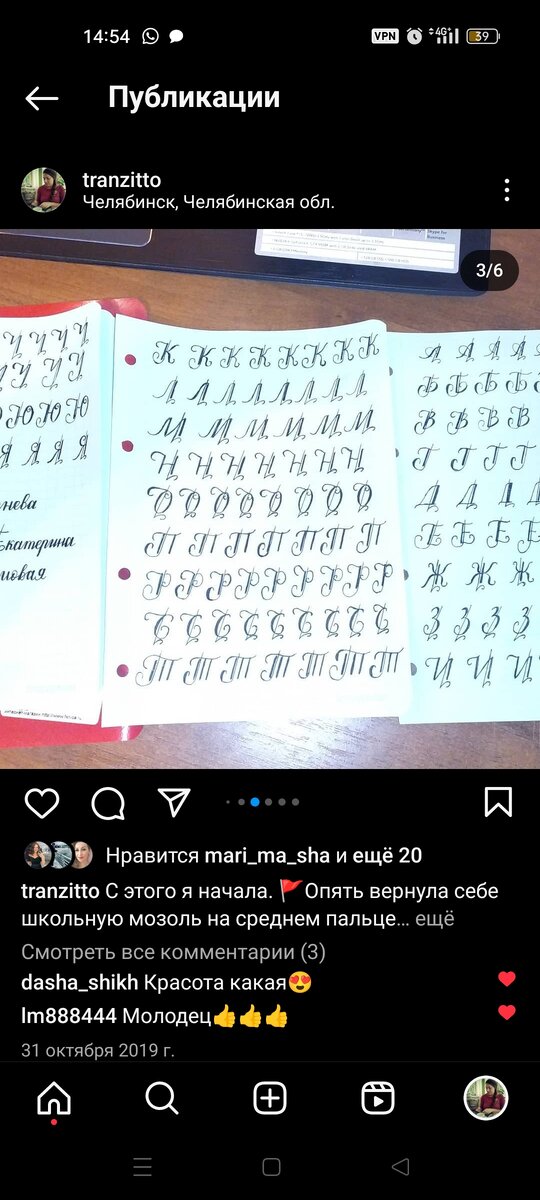 14:54
VPN 4G 39
Публикации
tranzitto
Челябинск, Челябинская обл.
3/6
Ч Ч Ч Ч
Ц Ц Ц
Ю Ю Ю
Я Я Я Я
нева
Екатерина
мовая
К К К К К К К К
Л Л Л Л Л Л Л Л
М М М М М М
Н Н Н Н Н Н Н
О О О О О О О О
П П П П П П П
Р Р Р Р Р Р Р Р
С С С С С С С С
Т Т Т Т Т Т Т
А А А А
Б Б Б Б Б
В В В В
Г Г Г Г
Д Д Д Д
Е Е Е Е
Ж Ж Ж
З З З З
И И И
Нравится mari_ma_sha и ещё 20
tranzitto С этого я начала. 🚩Опять вернула себе
школьную мозоль на среднем пальце... ещё
Смотреть все комментарии (3)
dasha_shikh Красота какая😍
lm888444 Молодец👍👍👍
31 октября 2019 г.